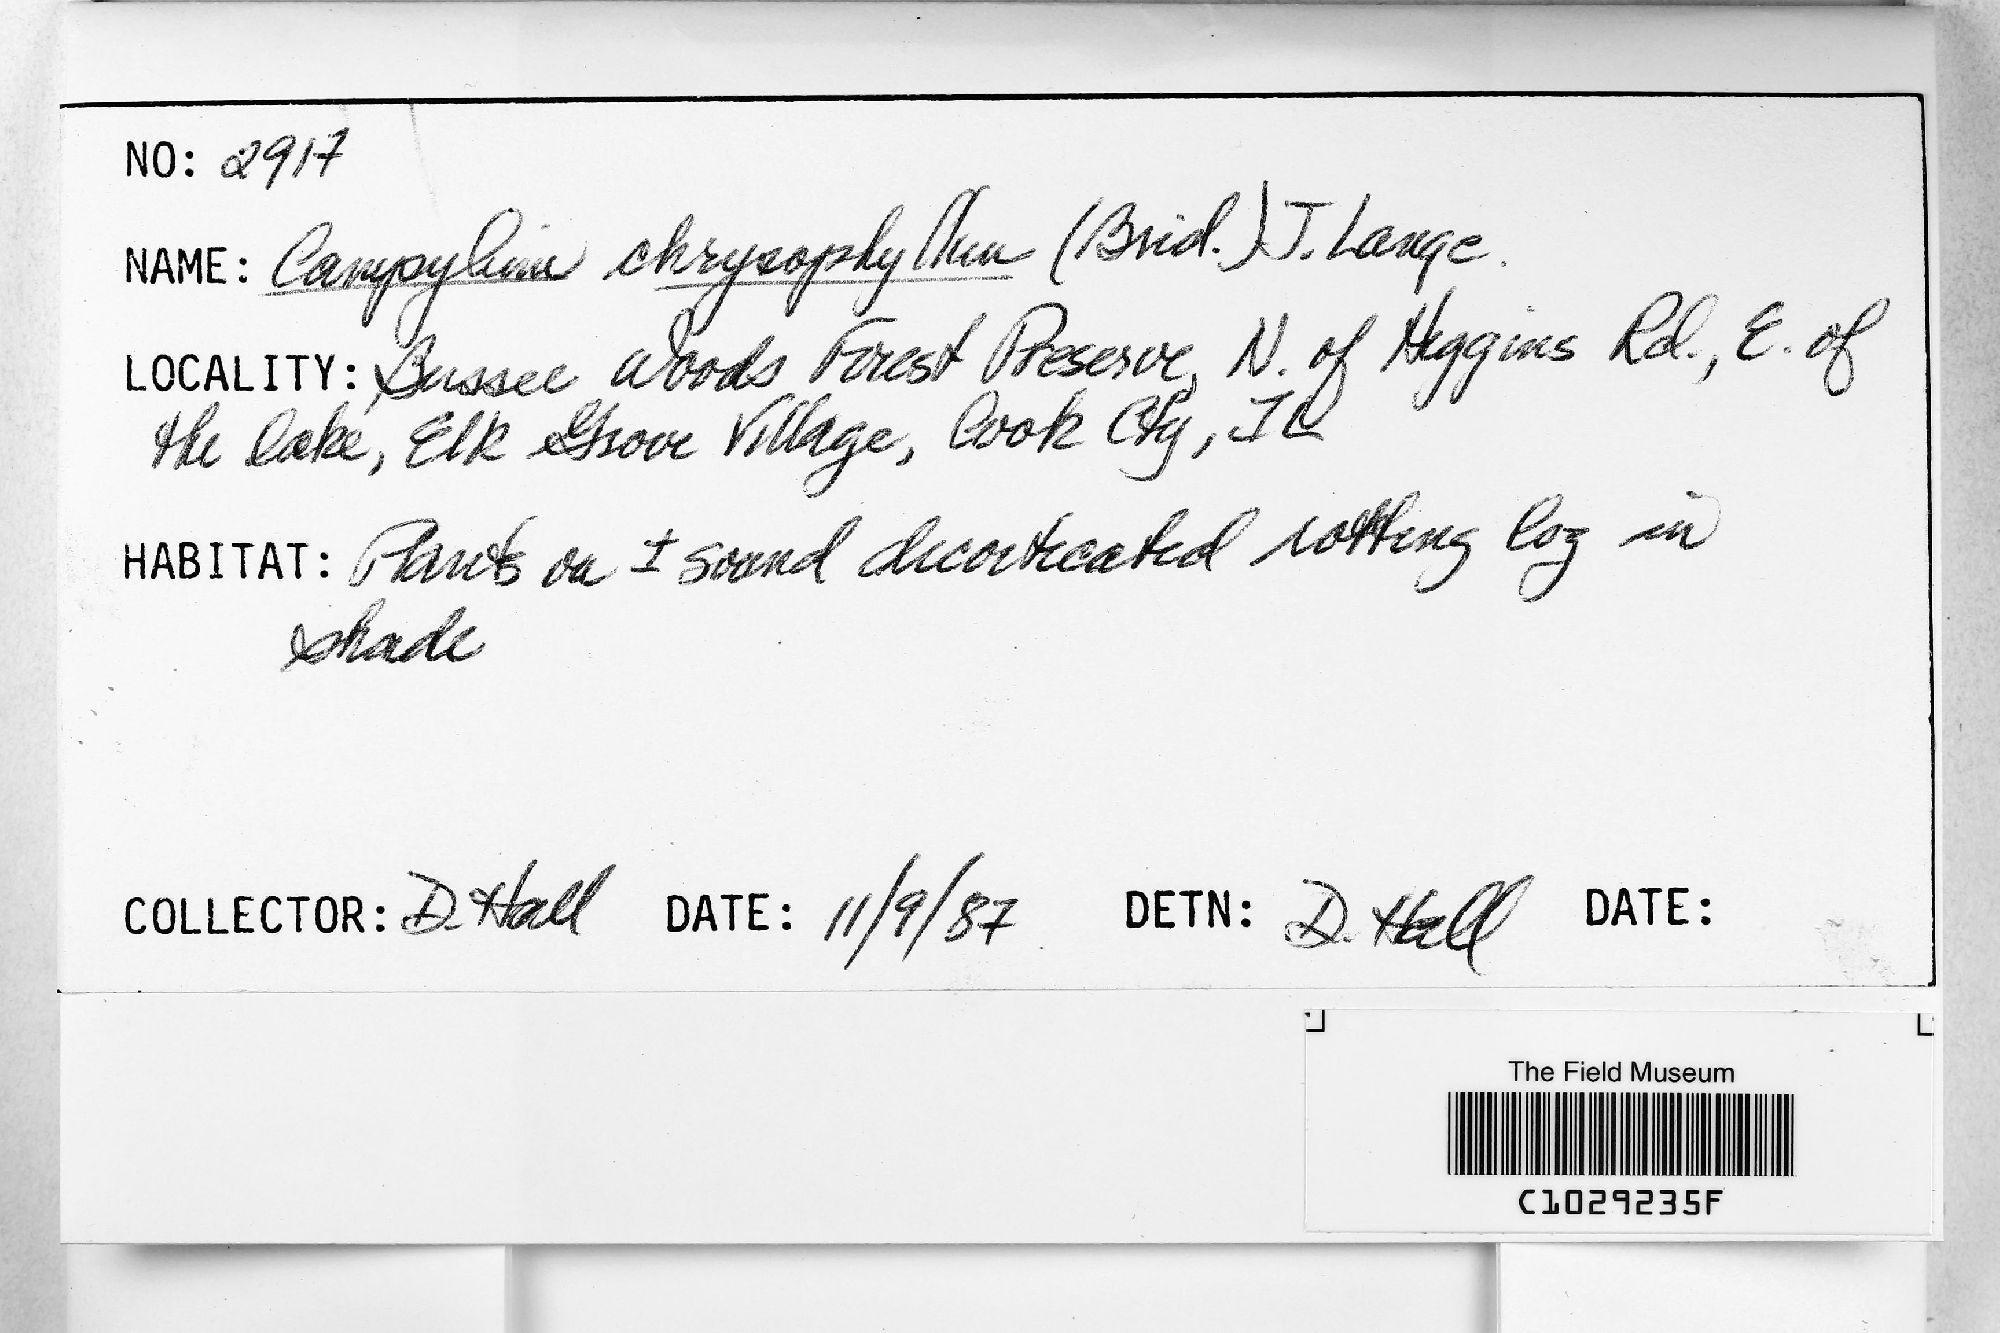 NO: 2917
NAME: Campylium chrysophyllum (Brid.) J. Lange.
LOCALITY: Bussee Woods Forest Preserve, N. of Higgins Rd., E. of
the lake, Elk Grove Village, Cook Cty, IL
HABITAT: Plants on ± sound decorticated rotting log in
shade
COLLECTOR: D. Hall DATE: 11/9/87 DETN: D. Hall DATE:
The Field Museum
C1029235F